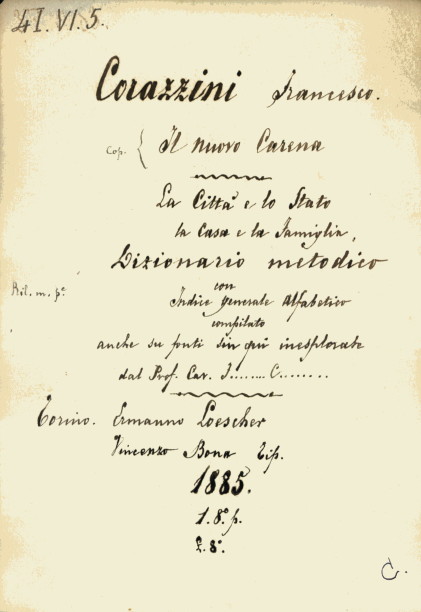 41.VI.5.
Corazzini Francesco.
Cop. { Il nuovo Carena
La Città e lo Stato
la Casa e la Famiglia,
Dizionario metodico
con
Indice generale Alfabetico
compilato
Ril. m. pe
anche su fonti sin quì inesplorate
dal Prof. Cav. F........ C.......
Torino. Ermanno Loescher
Vincenzo Bona Tip.
1885.
1.8º. p.
£. 8º.
C.